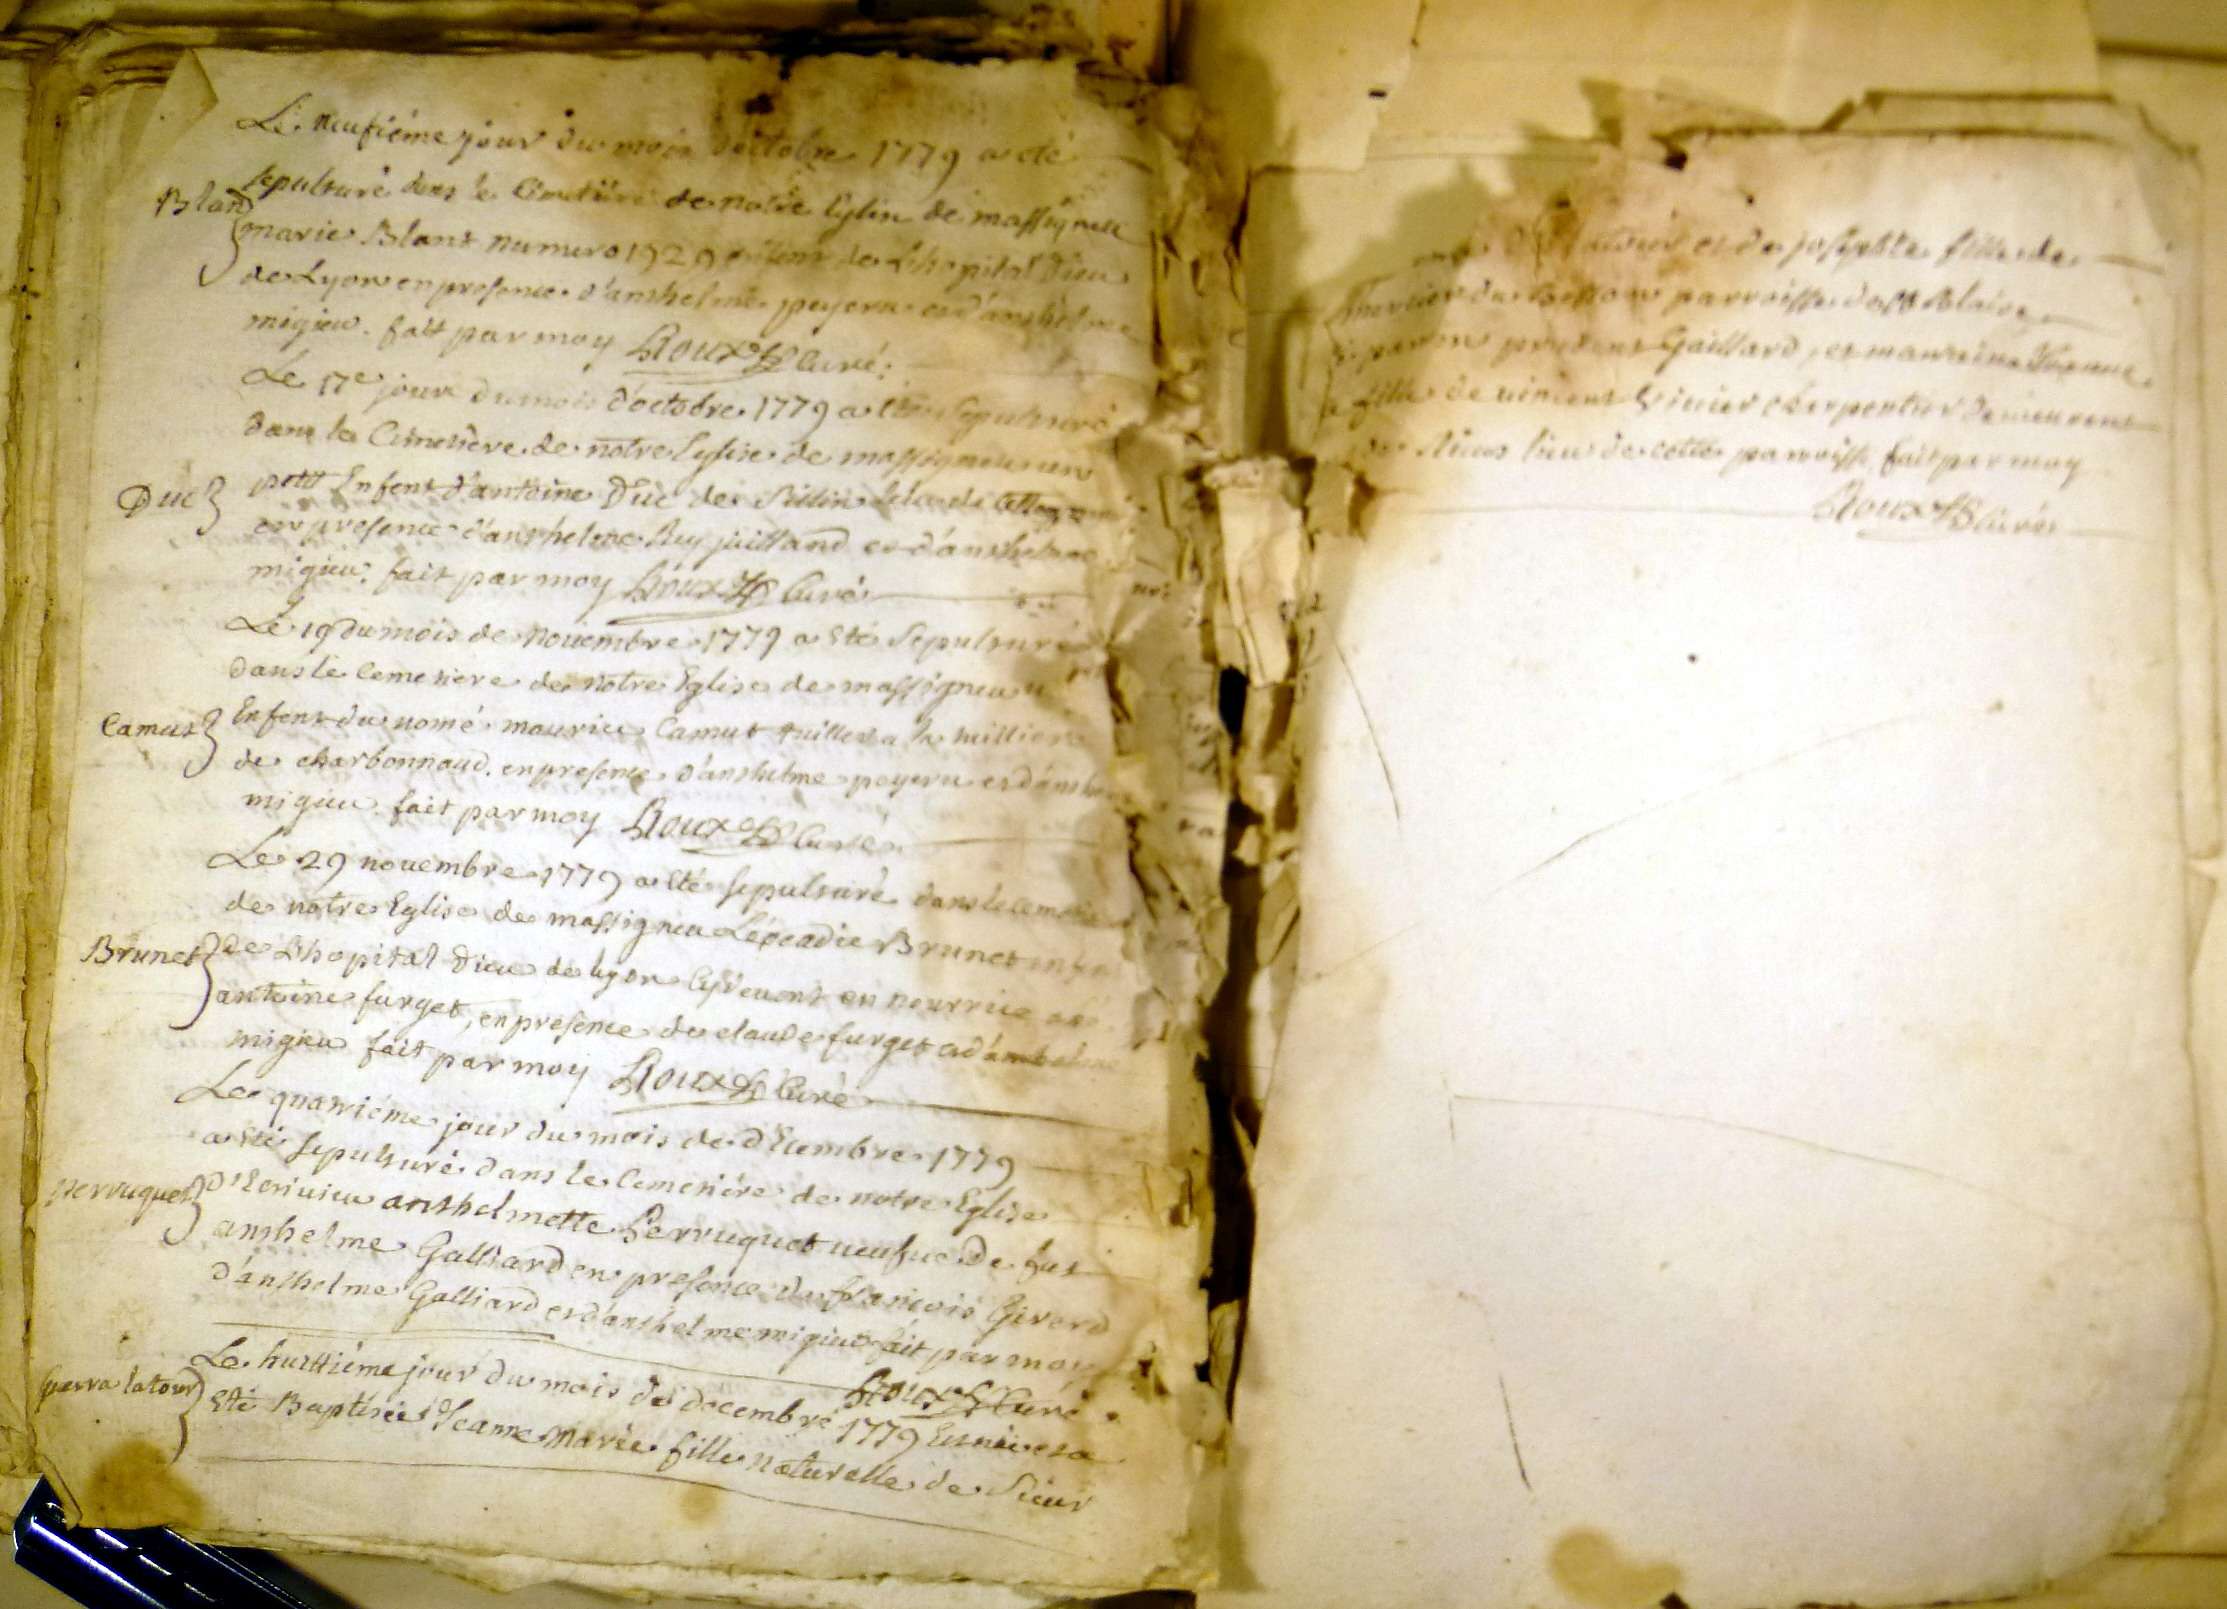 Le neufiéme jour du mois d'octobre 1779 a été
Blan
sepulturé dans le Cimetiére de notre Eglise de massigneu
marie Blant numero 1929 de Lhopital Dieu
de Lyon en presence d'anthelme peyeru et d'anthelme
migieu. fait par moy Rioux Curé.
Le 17e jour du mois d'octobre 1779 a été sepulturé
dans le Cimetière de notre Eglise de massigneu un
Duc
petit Enfent d'antoine Duc de
en presence d'anthelme Rey juilland et d'anthelme
migieu. fait par moy Rioux Curé
Le 19 du mois de novembre 1779 a été sepulturé
dans le Cemetiere de notre Eglise de massigneu u
Camus
Enfent du nomé maurice Camut
de charbonnaud. en presence d'anthelme peyeru et d'anthe
migieu. fait par moy Rioux Curé
Le 29 novembre 1779 a eté sepulturé dans le cemetie
de notre Eglise de massigneu Léocadie Brunet enfen
Brunet
de Lhopital Dieu de lyon Cydevent en nourrice
antoine furget, en presence de claude furget et d'anthelme
migieu fait par moy Rioux Curé
Le quatriéme jour du mois de dEcembre 1779
a Eté sepulturé dans le Cemetiére de notre Eglise
perruquet
d'Ecrivieu anthelmette Perruquet veufve de fut
anthelme Galliard en presence de françois Girerd
d'anthelme Galliard et d'anthelme migieu fait par moy
Rioux Curé
Le huittiéme jour du mois de decembre 1779 Est née et a
perra latour
Eté Baptisée Jeanne Marie fille naturelle de Sieur
et de josephte fille de
parroisse de St Blaise
Gaillard, et marraine
fille de vincent charpentier demeurant
lieu de cette parroisse fait par moy
Rioux Curé